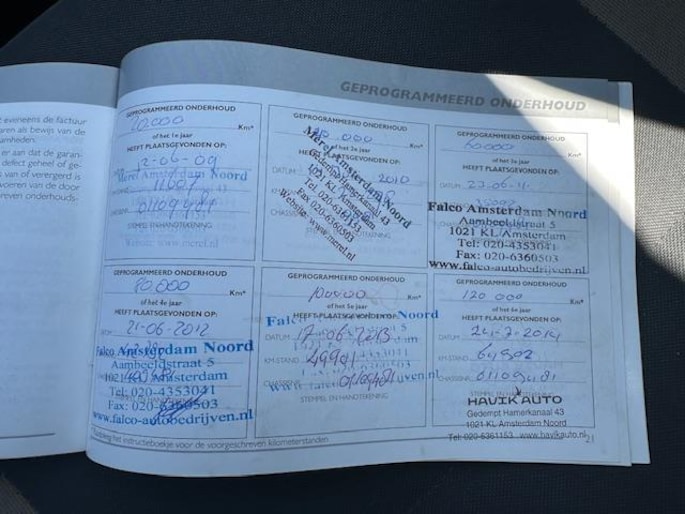 t eveneens de factuur
aren als bewijs van de
amheden.
er aan dat de garan-
defect geheel of ge-
van of verergerd is
voeren van de door
reven onderhouds-
GEPROGRAMMEERD ONDERHOUD
GEPROGRAMMEERD ONDERHOUD
Km*
of het 1e jaar
HEEFT PLAATSGEVONDEN OP:
12-06-09
Merel Amsterdam Noord
STEMPEL EN HANDTEKENING
GEPROGRAMMEERD ONDERHOUD
000
Km*
of het 2e jaar
HEEFT PLAATSGEVONDEN OP:
DATUM 2010
Merel Amsterdam Noord
Gedempt Hamerkanaal 43
1021 KL Amsterdam
Tel. 020-6361153
Fax 020-6360503
Website: www.merel.nl
GEPROGRAMMEERD ONDERHOUD
60000
Km*
of het 3e jaar
HEEFT PLAATSGEVONDEN OP:
DATUM 27-06-11
Falco Amsterdam Noord
Aambeeldstraat 5
1021 KL Amsterdam
Tel: 020-4353041
Fax: 020-6360503
www.falco-autobedrijven.nl
GEPROGRAMMEERD ONDERHOUD
80.000
Km*
of het 4e jaar
HEEFT PLAATSGEVONDEN OP:
21-06-2012
Falco Amsterdam Noord
Aambeeldstraat 5
1021 KL Amsterdam
Tel: 020-4353041
Fax: 020-6360503
www.falco-autobedrijven.nl
GEPROGRAMMEERD ONDERHOUD
100.000
Km*
of het 5e jaar
HEEFT PLAATSGEVONDEN OP:
Falco Amsterdam Noord
DATUM 17-06-2013
KM-STAND 49901
www.falco-autobedrijven.nl
STEMPEL EN HANDTEKENING
GEPROGRAMMEERD ONDERHOUD
120 000
Km*
of het 6e jaar
HEEFT PLAATSGEVONDEN OP:
DATUM 24-7-2014
KM-STAND
CHASSISNR. 01109481
STEMPEL EN HANDTEKENING
HAVIK AUTO
Gedempt Hamerkanaal 43
1021 KL Amsterdam Noord
Tel: 020-6361153 www.havikauto.nl
* Raadpleeg het instructieboekje voor de voorgeschreven kilometerstanden.
21